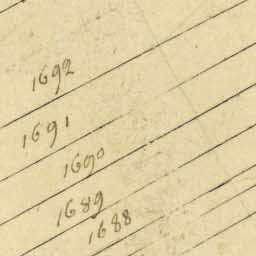 1692
1691
1690
1689
1688